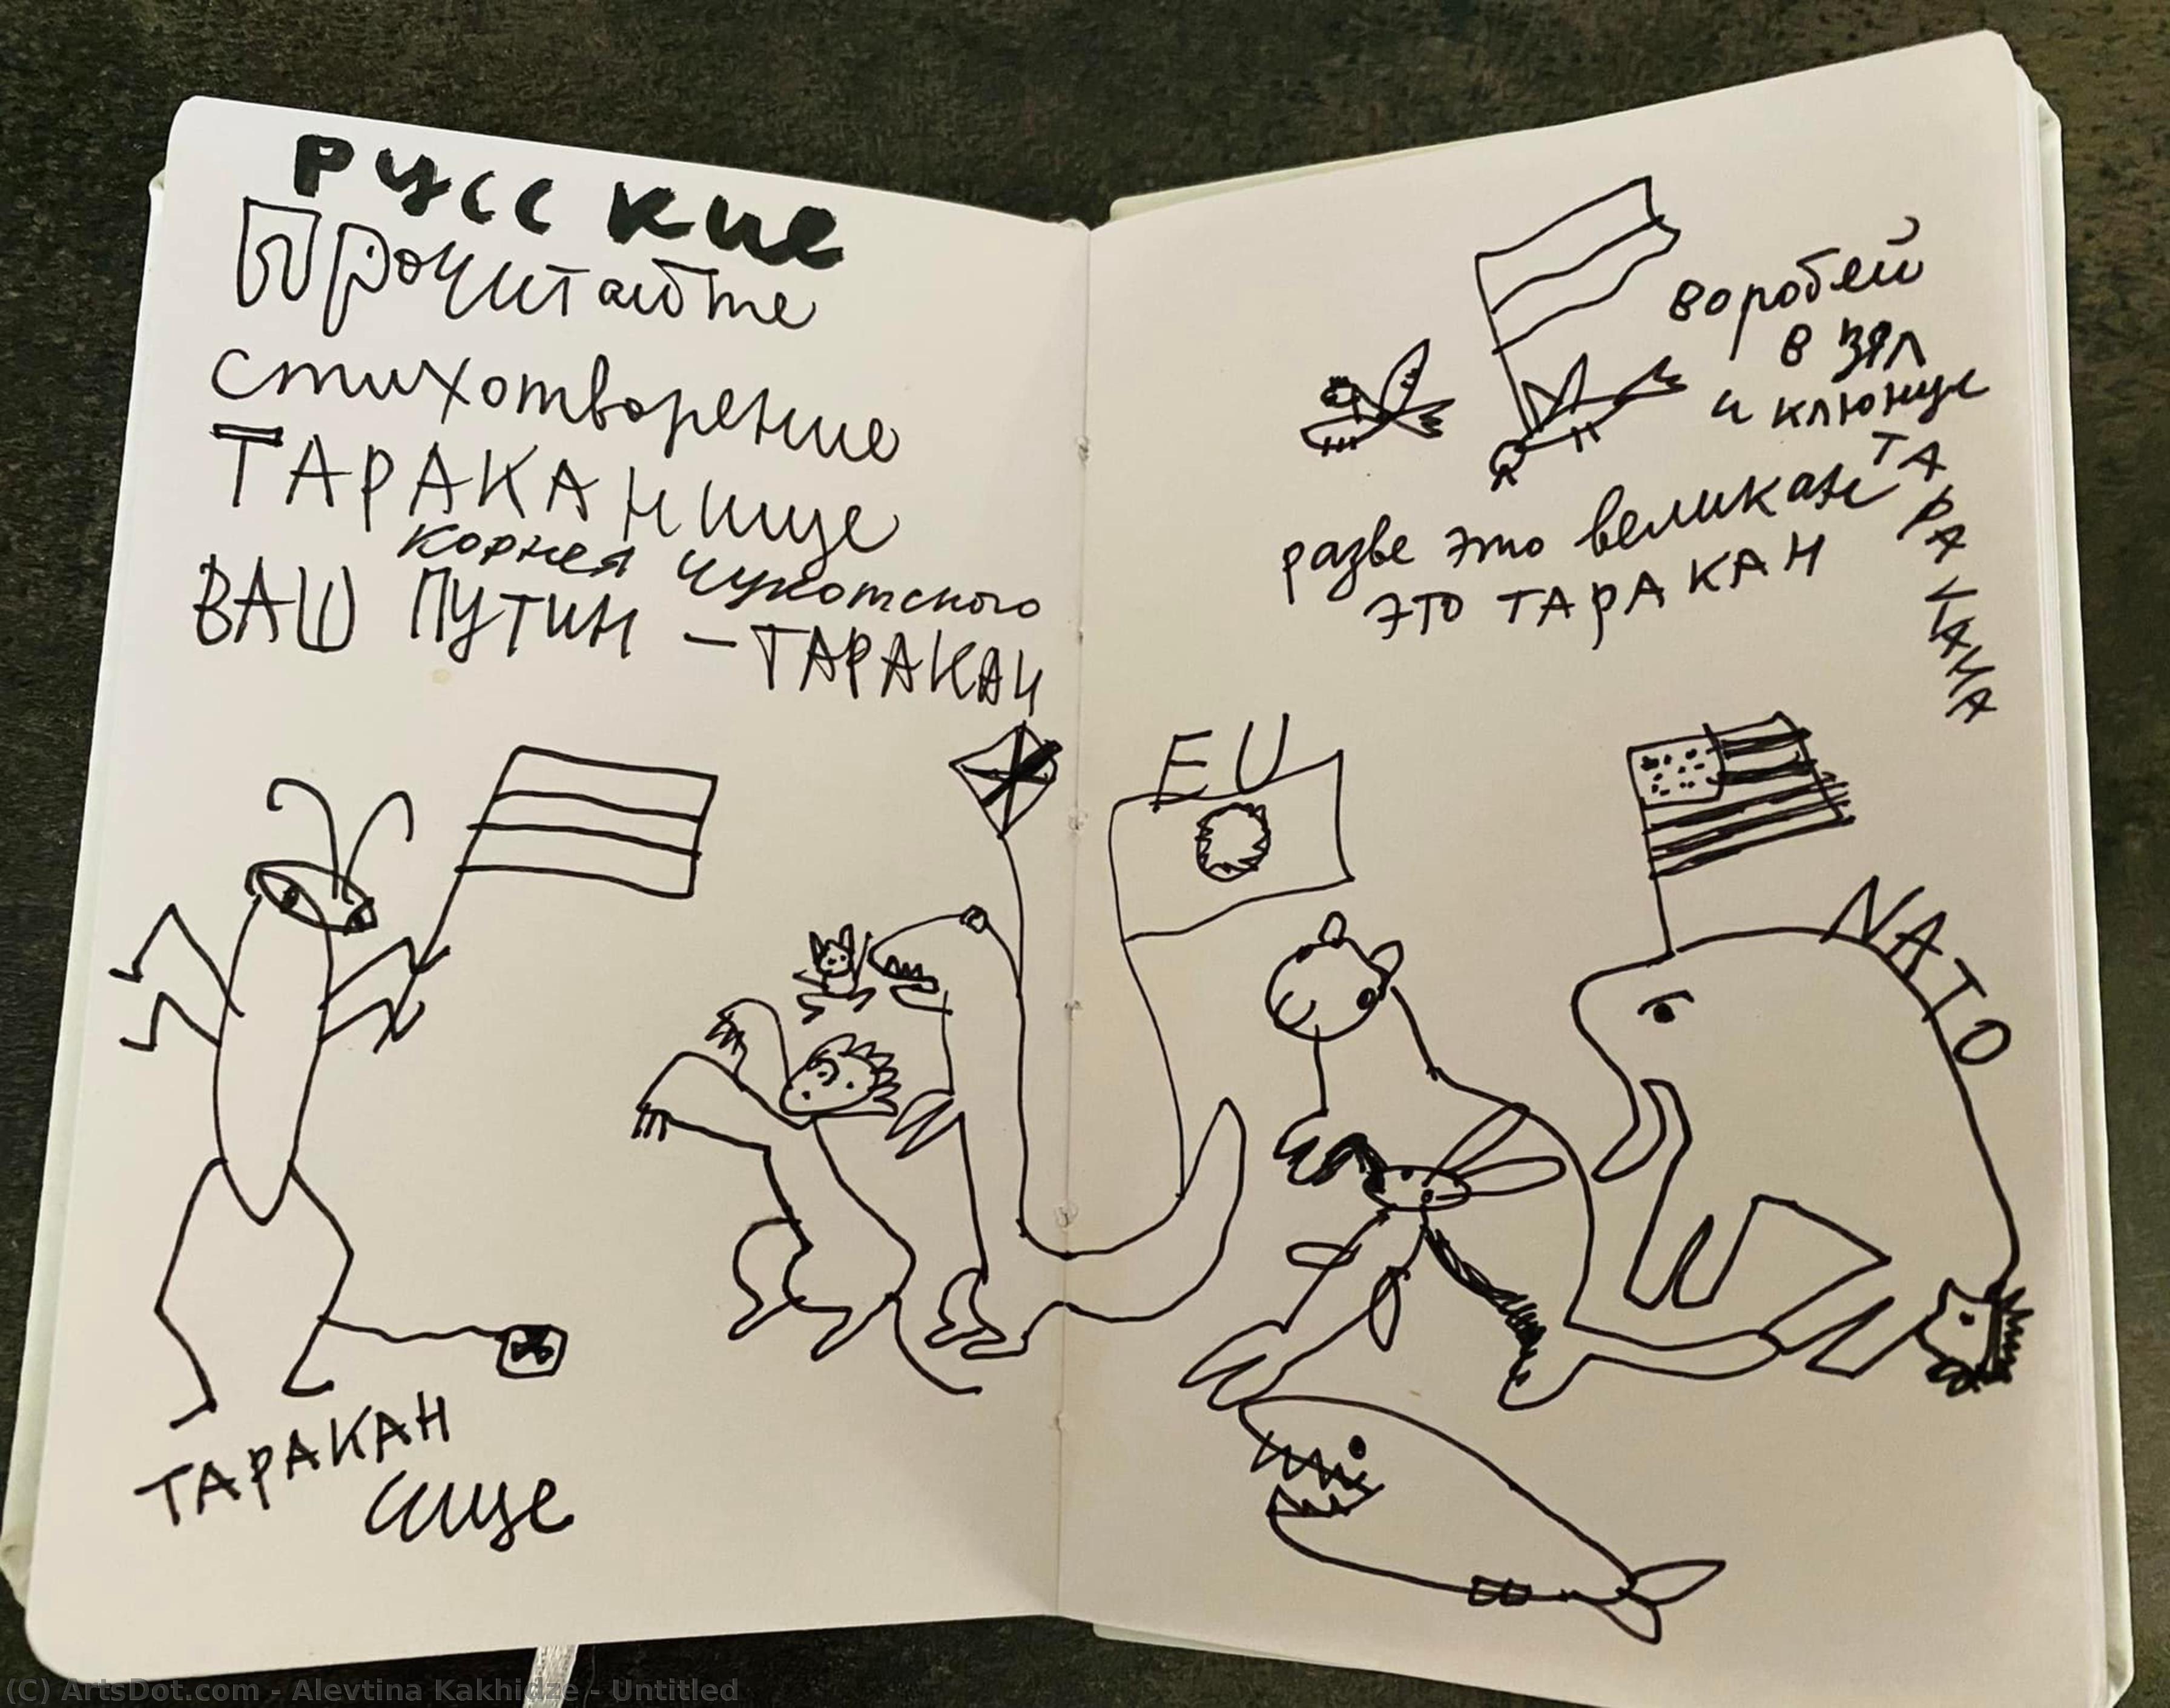 русские
Прочитайте
стихотворение
ТАРАКАНище
Корнея Чукотского
ВАШ ПУТИН – ТАРАКАН
ТАРАКАН
ище
воробей
взял
и клюнул
ТАРАКАНА
разве это великан
это ТАРАКАН
EU
NATO
(C) ArtsDot.com - Alevtina Kakhidze - Untitled